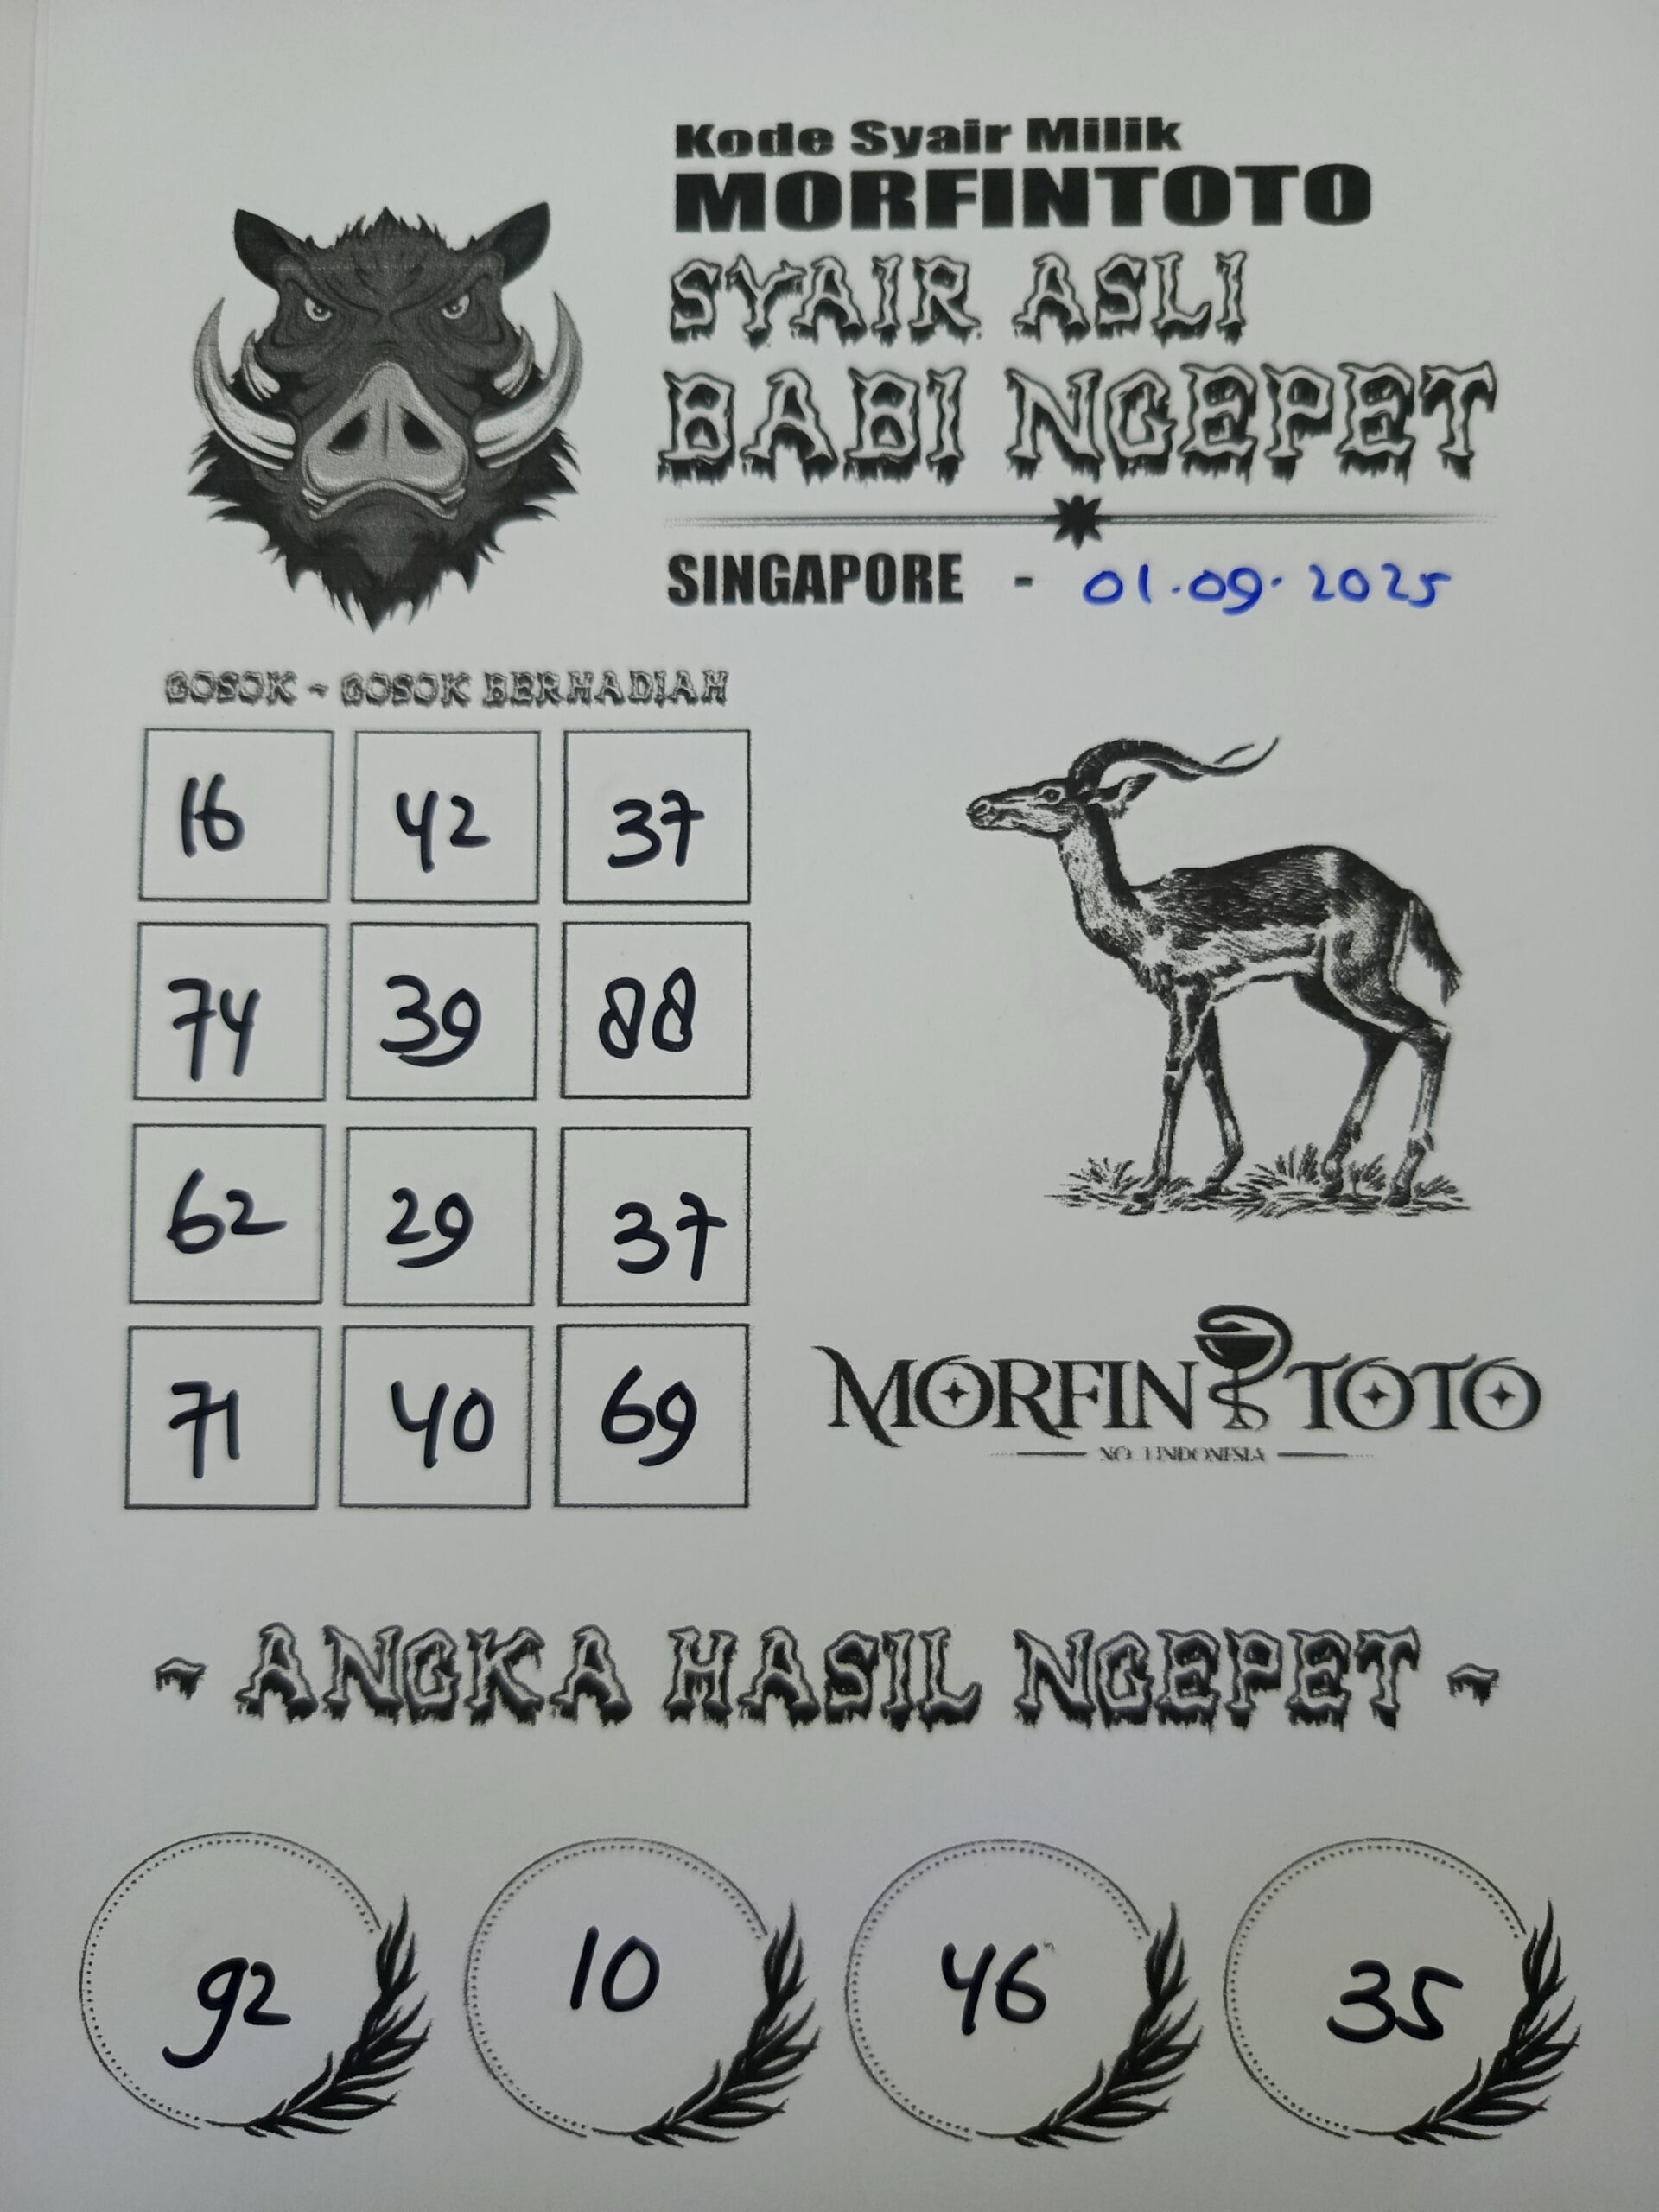 Kode Syair Milik
MORFINTOTO
SYAIR ASLI
BABI NGEPET
SINGAPORE - 01.09.2025
GOSOK - GOSOK BERHADIAH
16 42 37
74 39 88
62 29 37
71 40 69
MORFIN TOTO
NO. 1 INDONESIA
~ ANGKA HASIL NGEPET ~
92 10 46 35